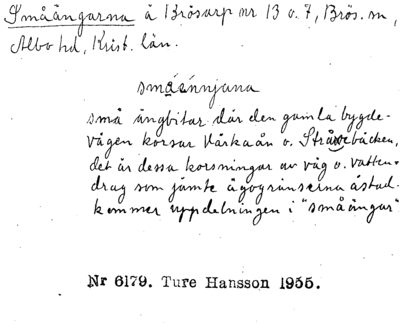 Småängarna å Brösarp nr 13 o. 7, Brös. sn,
Albo hd, Krist. län.
småännjana
små ängbitar där den gamla bygde-
vägen korsar Värkaån o. bäcken,
det är dessa korsningar av väg o. vatten-
drag som jämte ägogränserna åstad-
kommer uppdelningen i "småängar"
Nr 6179. Ture Hansson 1955.